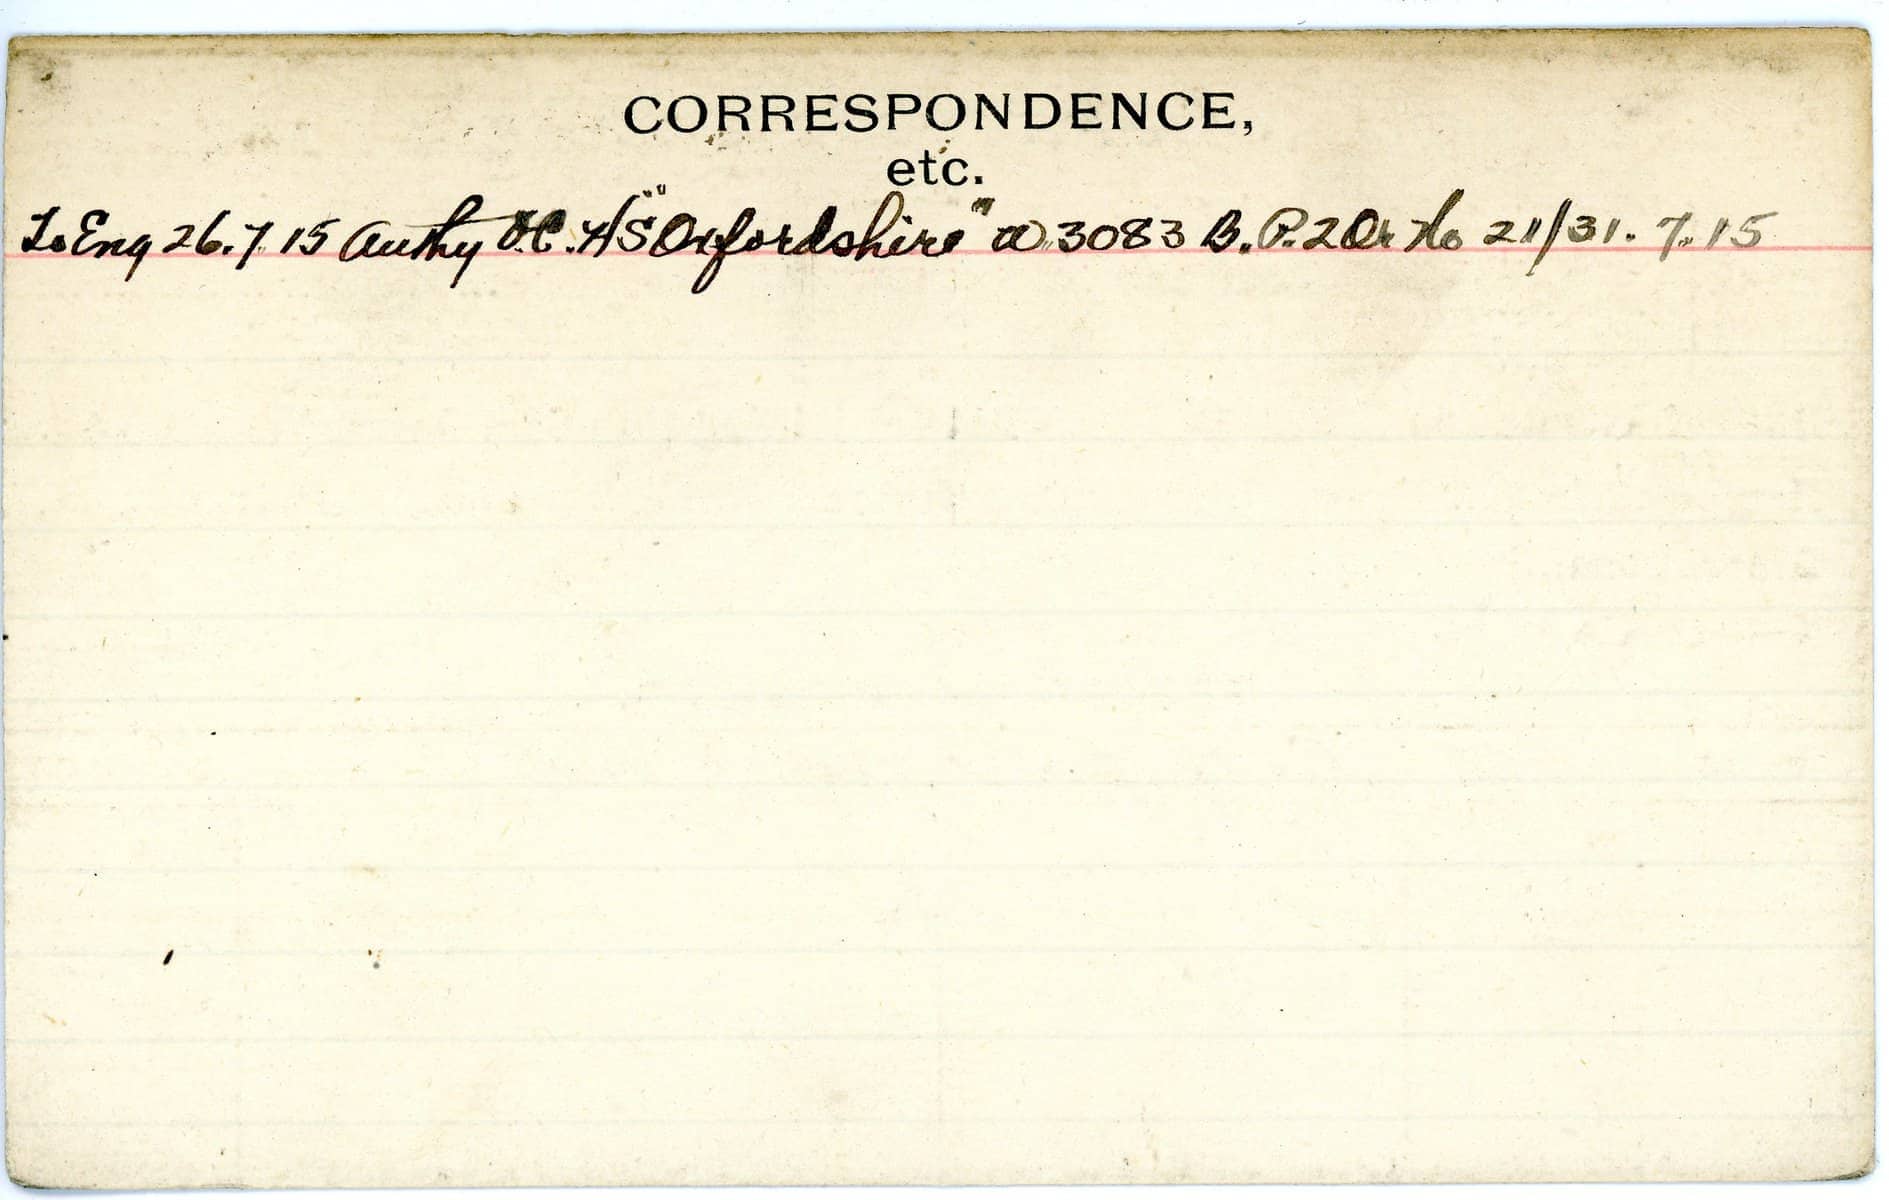 CORRESPONDENCE,
etc.
To Eng 26.7.15 Authy O.C. HS "Oxfordshire" W 3083 B. P. 2 Or No 211/31.7.15